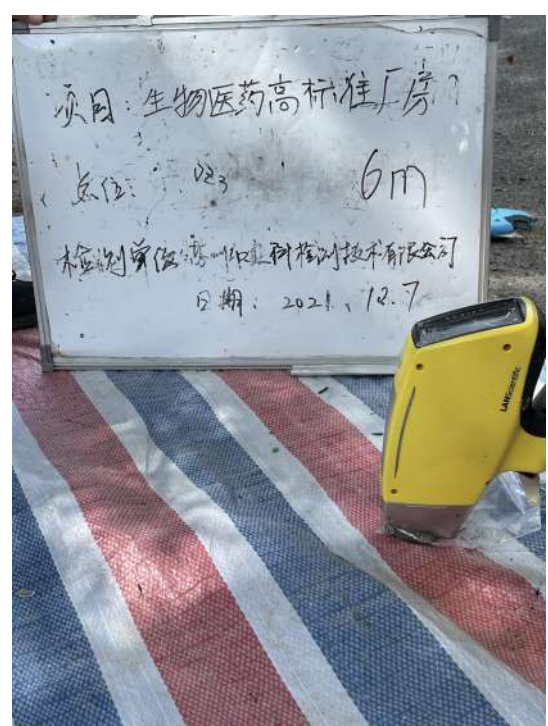 项目：生物医药高标准厂房
点位：DZ3 6m
检测单位：苏州 科检测技术有限公司
日期：2021.12.7
LANScientific